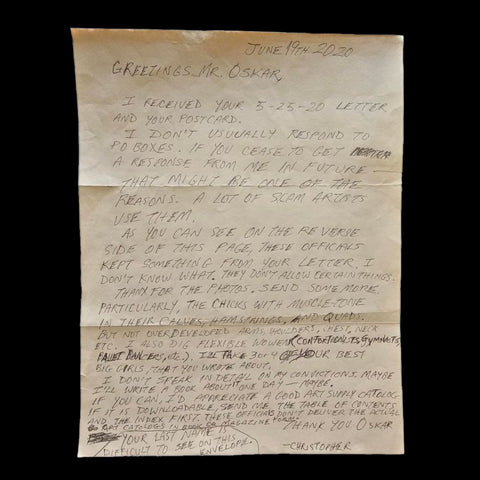 JUNE 19TH 2020
GREETINGS MR. OSKAR,
I RECEIVED YOUR 5-25-20 LETTER
AND YOUR POSTCARD.
I DON'T USUUALLY RESPOND TO
PO BOXES. IF YOU CEASE TO GET
A RESPONSE FROM ME IN FUTURE —
THAT MIGHT BE ONE OF THE
REASONS. A LOT OF SCAM ARTISTS
USE THEM.
AS YOU CAN SEE ON THE REVERSE
SIDE OF THIS PAGE, THESE OFFICIALS
KEPT SOMETHING FROM YOUR LETTER. I
DON'T KNOW WHAT. THEY DON'T ALLOW CERTAIN THINGS.
THANX FOR THE PHOTOS. SEND SOME MORE
PARTICULARLY, THE CHICKS WITH MUSCLE-TONE
IN THEIR CALVES, HAMSTRINGS, AND QUADS.
BUT NOT OVER DEVELOPED ARMS, SHOULDERS, CHEST, NECK
ETC. I ALSO DIG FLEXIBLE WOMEN (CONTORTIONISTS, GYMNASTS,
BALLET DANCERS, ETC.). I'LL TAKE 3 OR 4 OF YOUR BEST
BIG GIRLS, THAT YOU WROTE ABOUT.
I DON'T SPEAK IN DETAIL ON MY CONVICTIONS. MAYBE
I'LL WRITE A BOOK ABOUT ONE DAY — MAYBE.
IF YOU CAN, I'D APPRECIATE A GOOD ART SUPPLY CATALOG-
IF IT IS DOWNLOADABLE, SEND ME THE TABLE OF CONTENTS
AND THE INDEX FIRST. THESE OFFICIALS DON'T DELIVER THE ACTUAL
ART CATALOGS IN BOOK OR MAGAZINE FORM.
THANK YOU OSKAR
YOUR LAST NAME IS
DIFFICULT TO SEE ON THIS
ENVELOPE.
—CHRISTOPHER